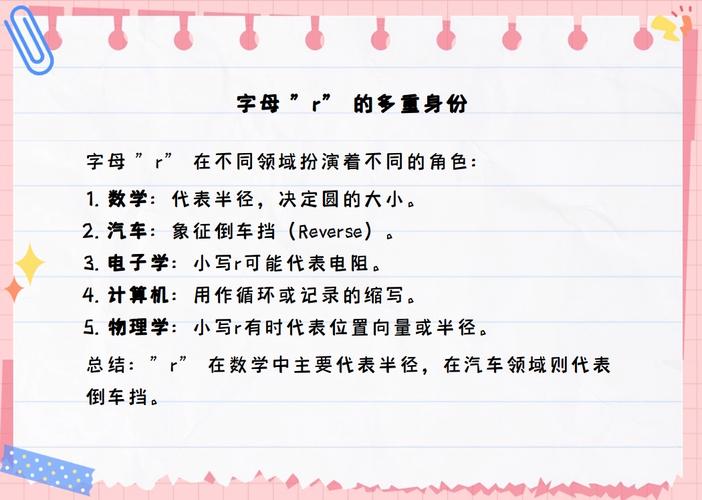 字母 ”r” 的多重身份
字母 ”r” 在不同领域扮演着不同的角色：
1. 数学：代表半径，决定圆的大小。
2. 汽车：象征倒车挡（Reverse）。
3. 电子学：小写r可能代表电阻。
4. 计算机：用作循环或记录的缩写。
5. 物理学：小写r有时代表位置向量或半径。
总结：”r” 在数学中主要代表半径，在汽车领域则代表
倒车挡。